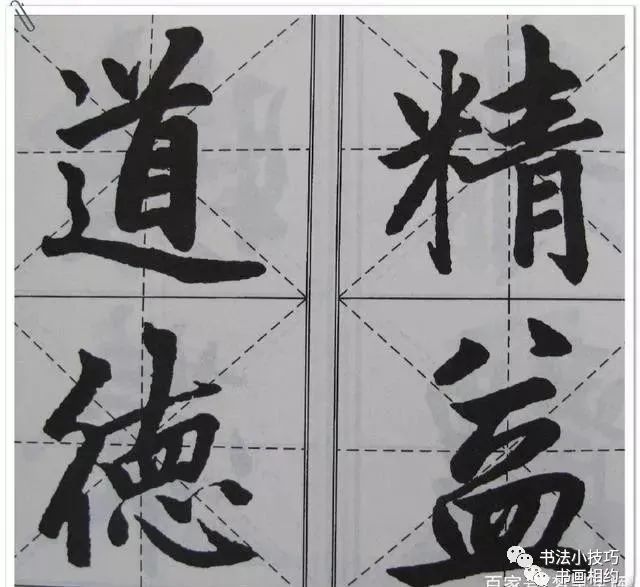 精益
道德
书法小技巧
书画相约
百家